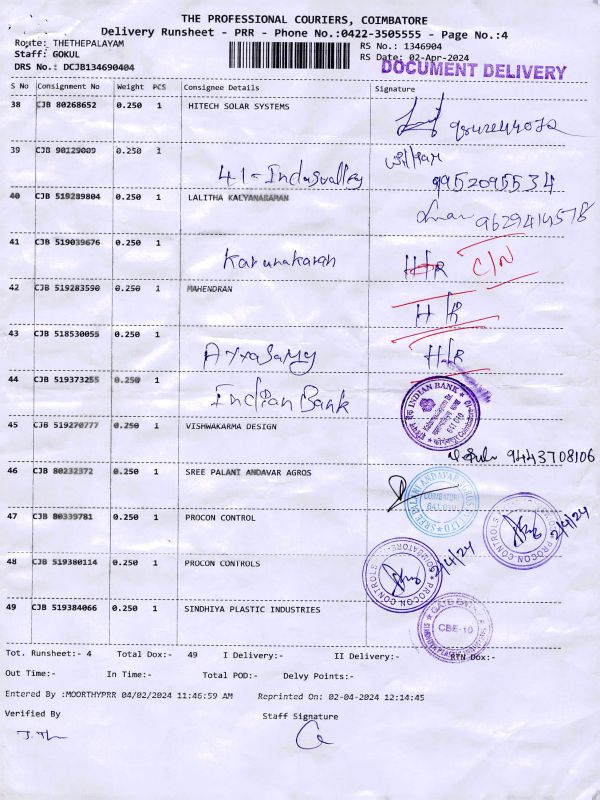 THE PROFESSIONAL COURIERS, COIMBATORE
Delivery Runsheet - PRR - Phone No.:0422-3505555 - Page No.:4
Route: THETHEPALAYAM
Staff: GOKUL
DRS No.: DCJB134690404
RS No.: 1346904
RS Date: 02-Apr-2024
DOCUMENT DELIVERY
S No Consignment No Weight PCS Consignee Details Signature
38 CJB 80268652 0.250 1 HITECH SOLAR SYSTEMS
39 CJB 90129009 0.250 1 41-Indusvalley William 9952095534
40 CJB 519289804 0.250 1 LALITHA KALYANARAMAN 9629414578
41 CJB 519039676 0.250 1 Karunakaran H/R C/N
42 CJB 519283590 0.250 1 MAHENDRAN H/R
43 CJB 518530055 0.250 1 Ayyasamy H/R
44 CJB 519373255 0.250 1 Indian Bank INDIAN BANK
45 CJB 519270777 0.250 1 VISHWAKARMA DESIGN 9443708106
46 CJB 80232372 0.250 1 SREE PALANI ANDAVAR AGROS SREE PALANI ANDAVAR AGROS COIMBATORE 641 010
47 CJB 80339781 0.250 1 PROCON CONTROL PROCON CONTROLS COIMBATORE 2/4/24
48 CJB 519380114 0.250 1 PROCON CONTROLS PROCON CONTROLS COIMBATORE 2/4/24
49 CJB 519384066 0.250 1 SINDHIYA PLASTIC INDUSTRIES CBE-10
Tot. Runsheet:- 4 Total Dox:- 49 I Delivery:- II Delivery:- RTN Dox:-
Out Time:- In Time:- Total POD:- Delvy Points:-
Entered By :MOORTHYPRR 04/02/2024 11:46:59 AM Reprinted On: 02-04-2024 12:14:45
Verified By Staff Signature